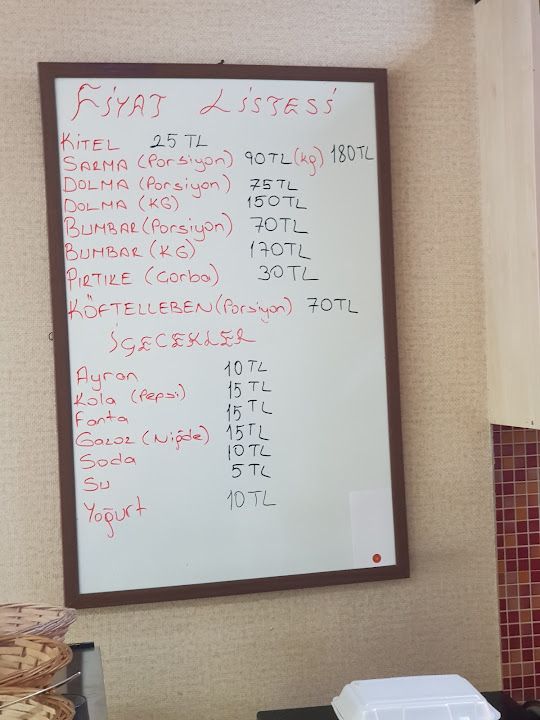 FİYAT LİSTESİ
KİTEL 25 TL
SARMA (Porsiyon) 90TL (kg) 180TL
DOLMA (Porsiyon) 75TL
DOLMA (KG) 150TL
BUMBAR (Porsiyon) 70TL
BUMBAR (KG) 170TL
PIRTIKE (Çorba) 30TL
KÖFTELLEBEN (Porsiyon) 70TL
İÇECEKLER
Ayran 10TL
Kola (Pepsi) 15TL
Fanta 15TL
Gazoz (Niğde) 15TL
Soda 10TL
Su 5TL
Yoğurt 10TL